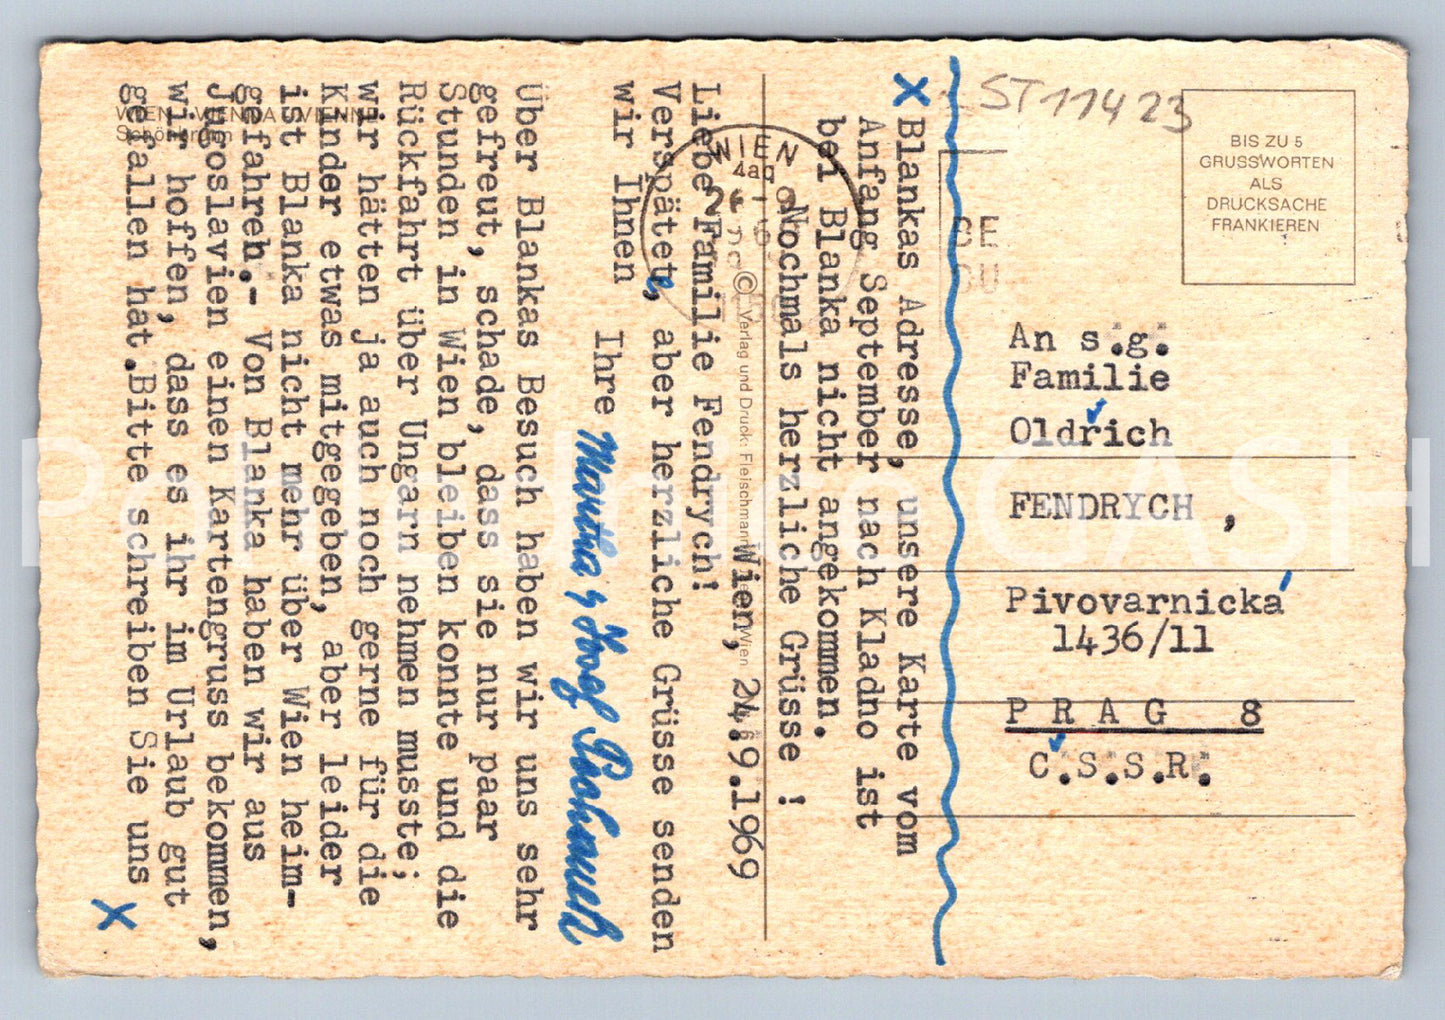 WIEN VIENNA VIENNE
Schönbrunn
Wien, 24.9.1969
Liebe Familie Fendrych!
Verspätet, aber herzliche Grüsse senden
wir Ihnen
Ihre Martha & Josef
Über Blankas Besuch haben wir uns sehr
gefreut, schade, dass sie nur paar
Stunden in Wien bleiben konnte und die
Rückfahrt über Ungarn nehmen musste;
wir hätten ja auch noch gerne für die
Kinder etwas mitgegeben, aber leider
ist Blanka nicht mehr über Wien heim-
gefahren.- Von Blanka haben wir aus
Jugoslavien einen Kartengruss bekommen,
wir hoffen, dass es ihr im Urlaub gut
gefallen hat.Bitte schreiben Sie uns
X
X Blankas Adresse, unsere Karte vom
Anfang September nach Kladno ist
bei Blanka nicht angekommen.
Nochmals herzliche Grüsse !
© Verlag und Druck: Fleischmann Wien
WIEN
ST11423
BIS ZU 5
GRUSSWORTEN
ALS
DRUCKSACHE
FRANKIEREN
An s.g.
Familie
Oldřich
FENDRYCH ,
Pivovarnická
1436/11
P R A G 8
Č.S.S.R.